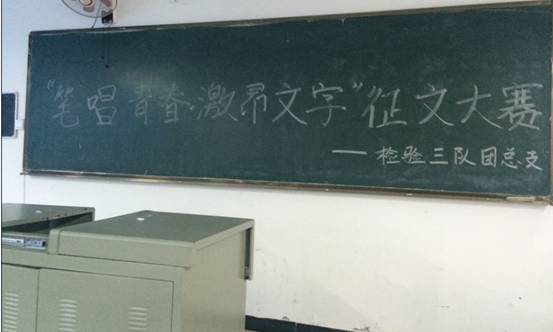 "笔唱青春激昂文字"征文大赛
——检验三队团总支